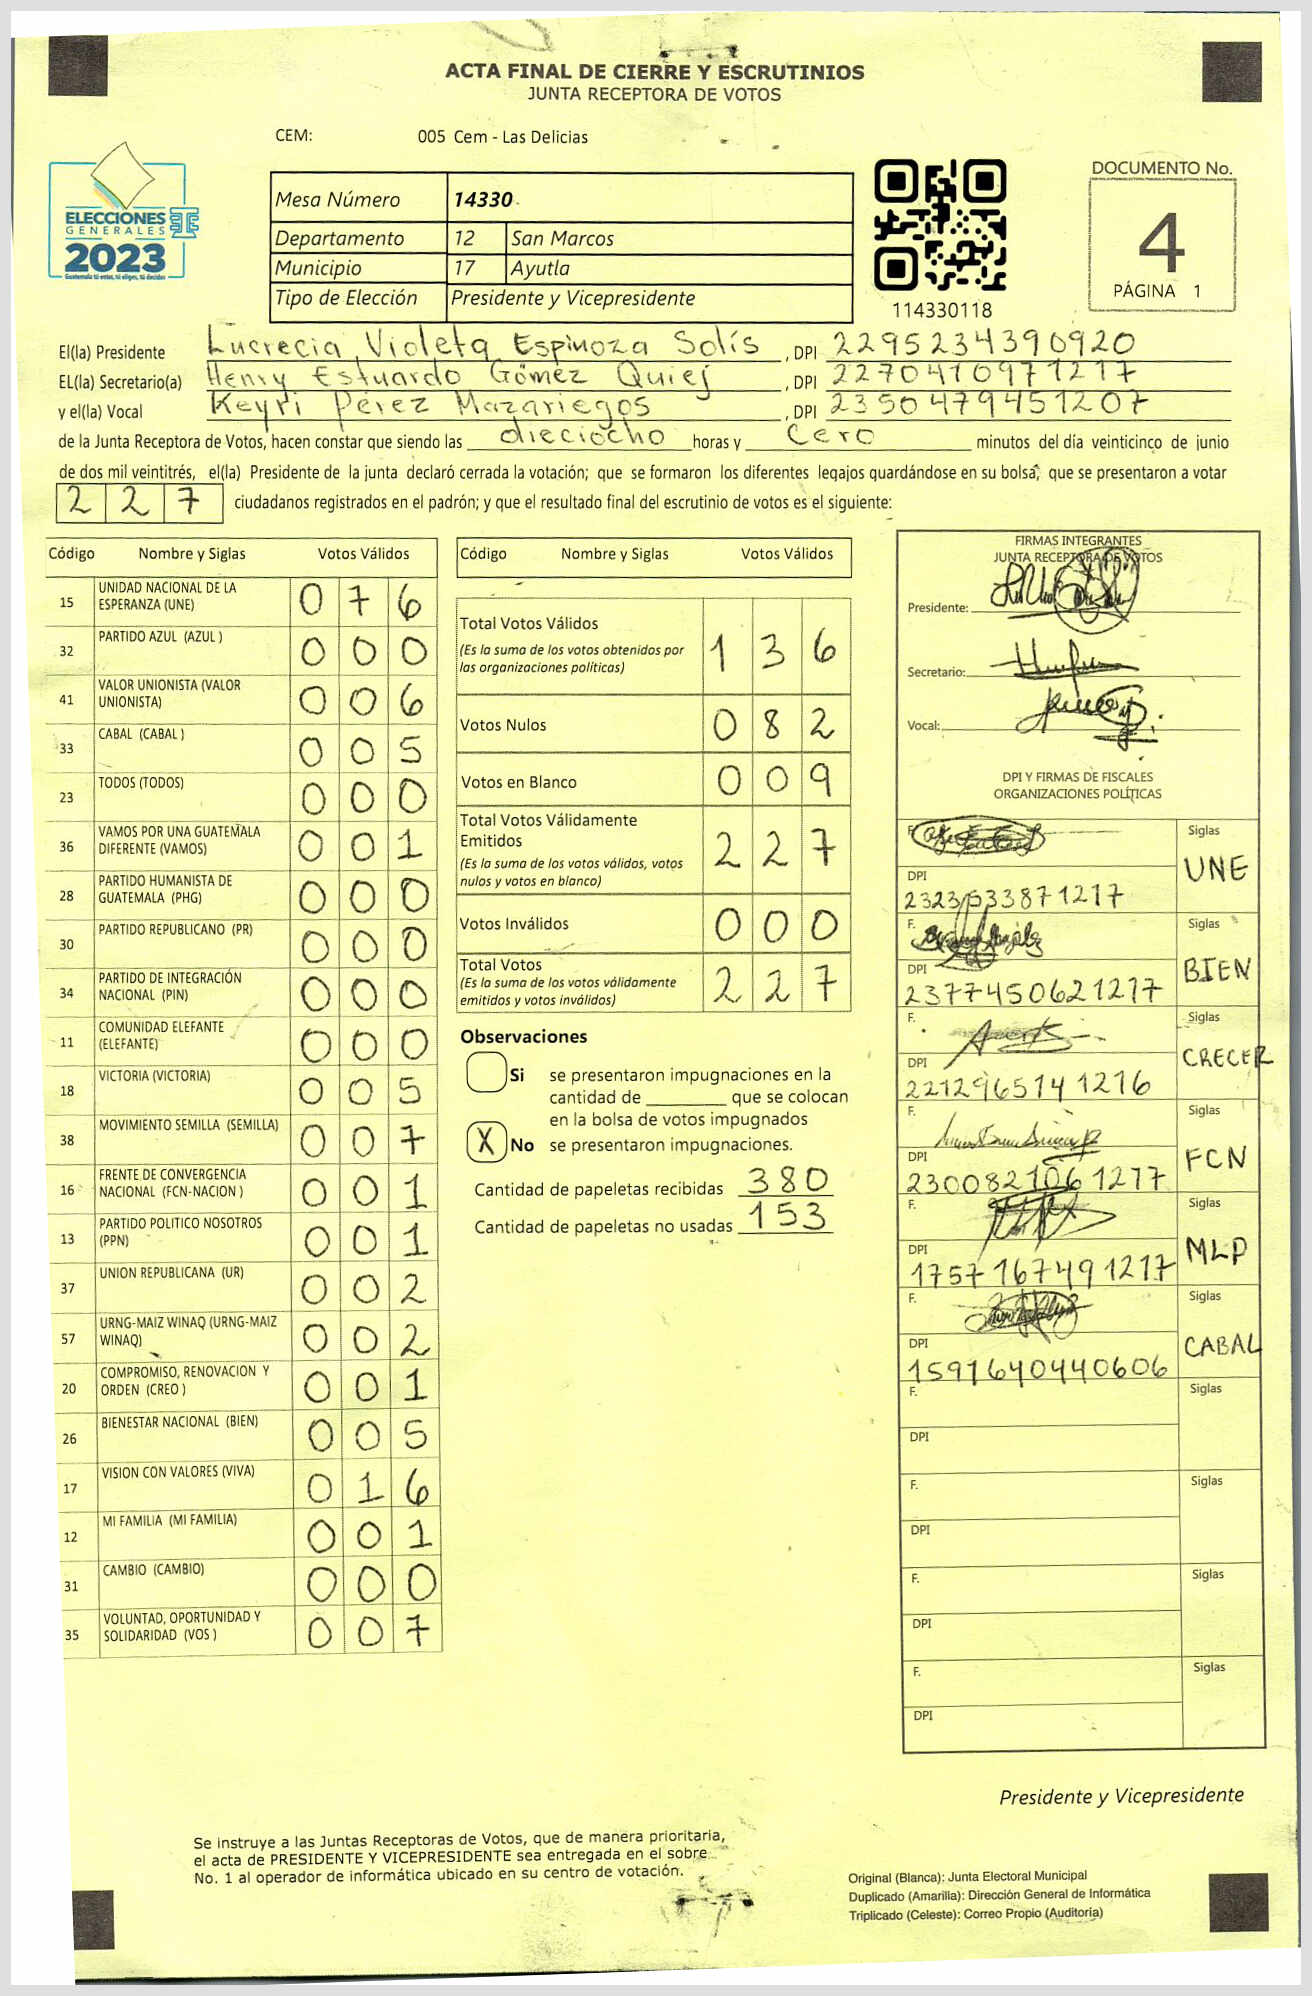 ACTA FINAL DE CIERRE Y ESCRUTINIOS
JUNTA RECEPTORA DE VOTOS
CEM: 005 Cem - Las Delicias
ELECCIONES
GENERALES
2023
Guatemala tú votas, tú eliges, tú decides
Mesa Número 14330
Departamento 12 San Marcos
Municipio 17 Ayutla
Tipo de Elección Presidente y Vicepresidente
114330118
DOCUMENTO No.
4
PÁGINA 1
El(la) Presidente Lucrecia Violeta Espinoza Solís , DPI 2295234390920
EL(la) Secretario(a) Henry Estuardo Gómez Quiej , DPI 2270410971217
y el(la) Vocal Keyri Pérez Mazariegos , DPI 2350479451207
de la Junta Receptora de Votos, hacen constar que siendo las dieciocho horas y Cero minutos del día veinticinco de junio
de dos mil veintitrés, el(la) Presidente de la junta declaró cerrada la votación; que se formaron los diferentes legajos guardándose en su bolsa; que se presentaron a votar
227 ciudadanos registrados en el padrón; y que el resultado final del escrutinio de votos es el siguiente:
Código Nombre y Siglas Votos Válidos
15 UNIDAD NACIONAL DE LA ESPERANZA (UNE) 076
32 PARTIDO AZUL (AZUL ) 000
41 VALOR UNIONISTA (VALOR UNIONISTA) 006
33 CABAL (CABAL ) 005
23 TODOS (TODOS) 000
36 VAMOS POR UNA GUATEMALA DIFERENTE (VAMOS) 001
28 PARTIDO HUMANISTA DE GUATEMALA (PHG) 000
30 PARTIDO REPUBLICANO (PR) 000
34 PARTIDO DE INTEGRACIÓN NACIONAL (PIN) 000
11 COMUNIDAD ELEFANTE (ELEFANTE) 000
18 VICTORIA (VICTORIA) 005
38 MOVIMIENTO SEMILLA (SEMILLA) 007
16 FRENTE DE CONVERGENCIA NACIONAL (FCN-NACION ) 001
13 PARTIDO POLITICO NOSOTROS (PPN) 001
37 UNION REPUBLICANA (UR) 002
57 URNG-MAIZ WINAQ (URNG-MAIZ WINAQ) 002
20 COMPROMISO, RENOVACION Y ORDEN (CREO ) 001
26 BIENESTAR NACIONAL (BIEN) 005
17 VISION CON VALORES (VIVA) 016
12 MI FAMILIA (MI FAMILIA) 001
31 CAMBIO (CAMBIO) 000
35 VOLUNTAD, OPORTUNIDAD Y SOLIDARIDAD (VOS ) 007
Código Nombre y Siglas Votos Válidos
Total Votos Válidos 136
(Es la suma de los votos obtenidos por
las organizaciones políticas)
Votos Nulos 082
Votos en Blanco 009
Total Votos Válidamente
Emitidos 227
(Es la suma de los votos válidos, votos
nulos y votos en blanco)
Votos Inválidos 000
Total Votos 227
(Es la suma de los votos válidamente
emitidos y votos inválidos)
Observaciones
Si se presentaron impugnaciones en la
cantidad de ________ que se colocan
en la bolsa de votos impugnados
X No se presentaron impugnaciones.
Cantidad de papeletas recibidas 380
Cantidad de papeletas no usadas 153
FIRMAS INTEGRANTES
JUNTA RECEPTORA DE VOTOS
Presidente:
Secretario:
Vocal:
DPI Y FIRMAS DE FISCALES
ORGANIZACIONES POLÍTICAS
F. Siglas
UNE
DPI
2323533871217
F. Siglas
BIEN
DPI
2377450621217
F. Siglas
CRECER
DPI
2212965141216
F. Siglas
FCN
DPI
2300821061217
F. Siglas
MLP
DPI
1757167491217
F. Siglas
CABAL
DPI
1591640440606
F. Siglas
DPI
F. Siglas
DPI
F. Siglas
DPI
F. Siglas
DPI
Presidente y Vicepresidente
Se instruye a las Juntas Receptoras de Votos, que de manera prioritaria,
el acta de PRESIDENTE Y VICEPRESIDENTE sea entregada en el sobre
No. 1 al operador de informática ubicado en su centro de votación.
Original (Blanca): Junta Electoral Municipal
Duplicado (Amarilla): Dirección General de Informática
Triplicado (Celeste): Correo Propio (Auditoria)